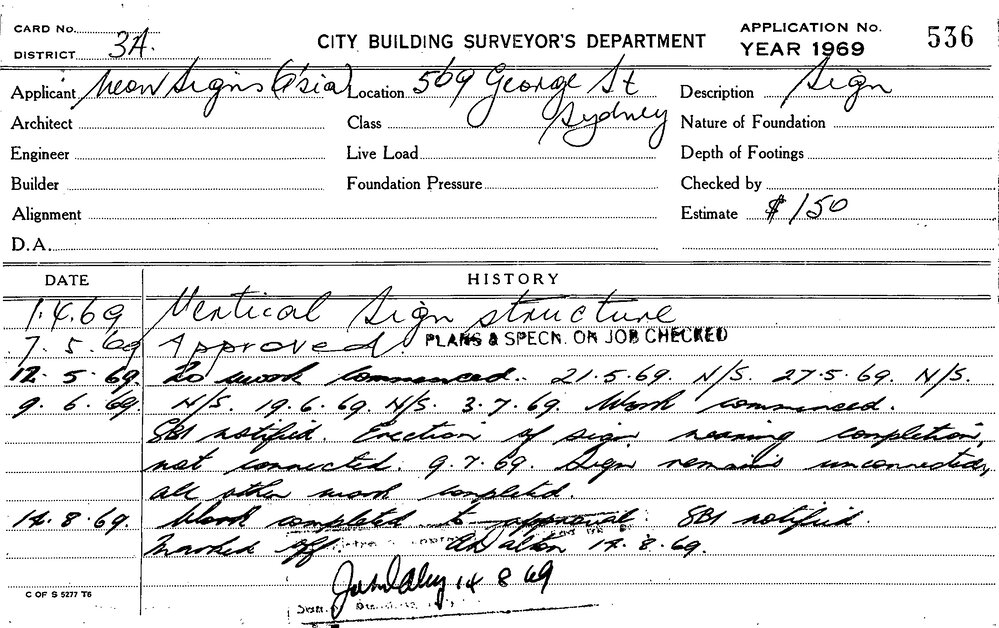 CARD No.
DISTRICT 3A.
CITY BUILDING SURVEYOR'S DEPARTMENT
APPLICATION No. 536
YEAR 1969
Applicant Neon Signs (A'sia) Location 569 George St Sydney Description Sign
Architect Class Nature of Foundation
Engineer Live Load Depth of Footings
Builder Foundation Pressure Checked by
Alignment Estimate $150
D.A.
DATE HISTORY
1.4.69 Vertical Sign structure
7.5.69 Approved. PLANS & SPECN. ON JOB CHECKED
12.5.69. No work commenced. 21.5.69. N/S. 27.5.69. N/S.
9.6.69. N/S. 19.6.69. N/S. 3.7.69. Work commenced.
SBI notified. Erection of sign nearing completion,
not connected. 9.7.69. Sign remains unconnected,
all other work completed.
14.8.69. Work completed to approval. SBI notified.
Marked off. 14.8.69.
14 8 69
C OF S 5277 T6